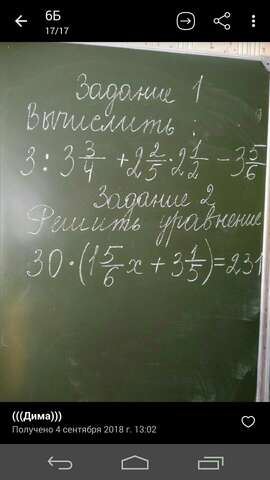 6Б
17/17
Задание 1
Вычислить:
3 : 3 3/4 + 2 2/5 · 2 1/2 - 3 5/6
Задание 2
Решить уравнение
30 · (1 5/6 x + 3 1/5) = 231
(((Дима)))
Получено 4 сентября 2018 г. 13:02